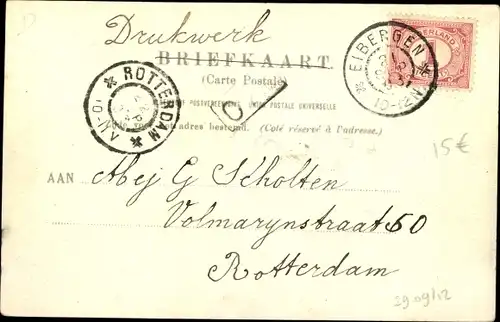 D
Drukwerk
BRIEFKAART
(Carte Postale)
POSTVEREENIGING. UNION POSTALE UNIVERSELLE
adres bestemd. (Côté réservé à l'adresse.)
EIBERGEN
10-12N
ROTTERDAM
NEDERLAND
15€
AAN
Abej G Scholten
Volmarynstraat 50
Rotterdam
29.09/12